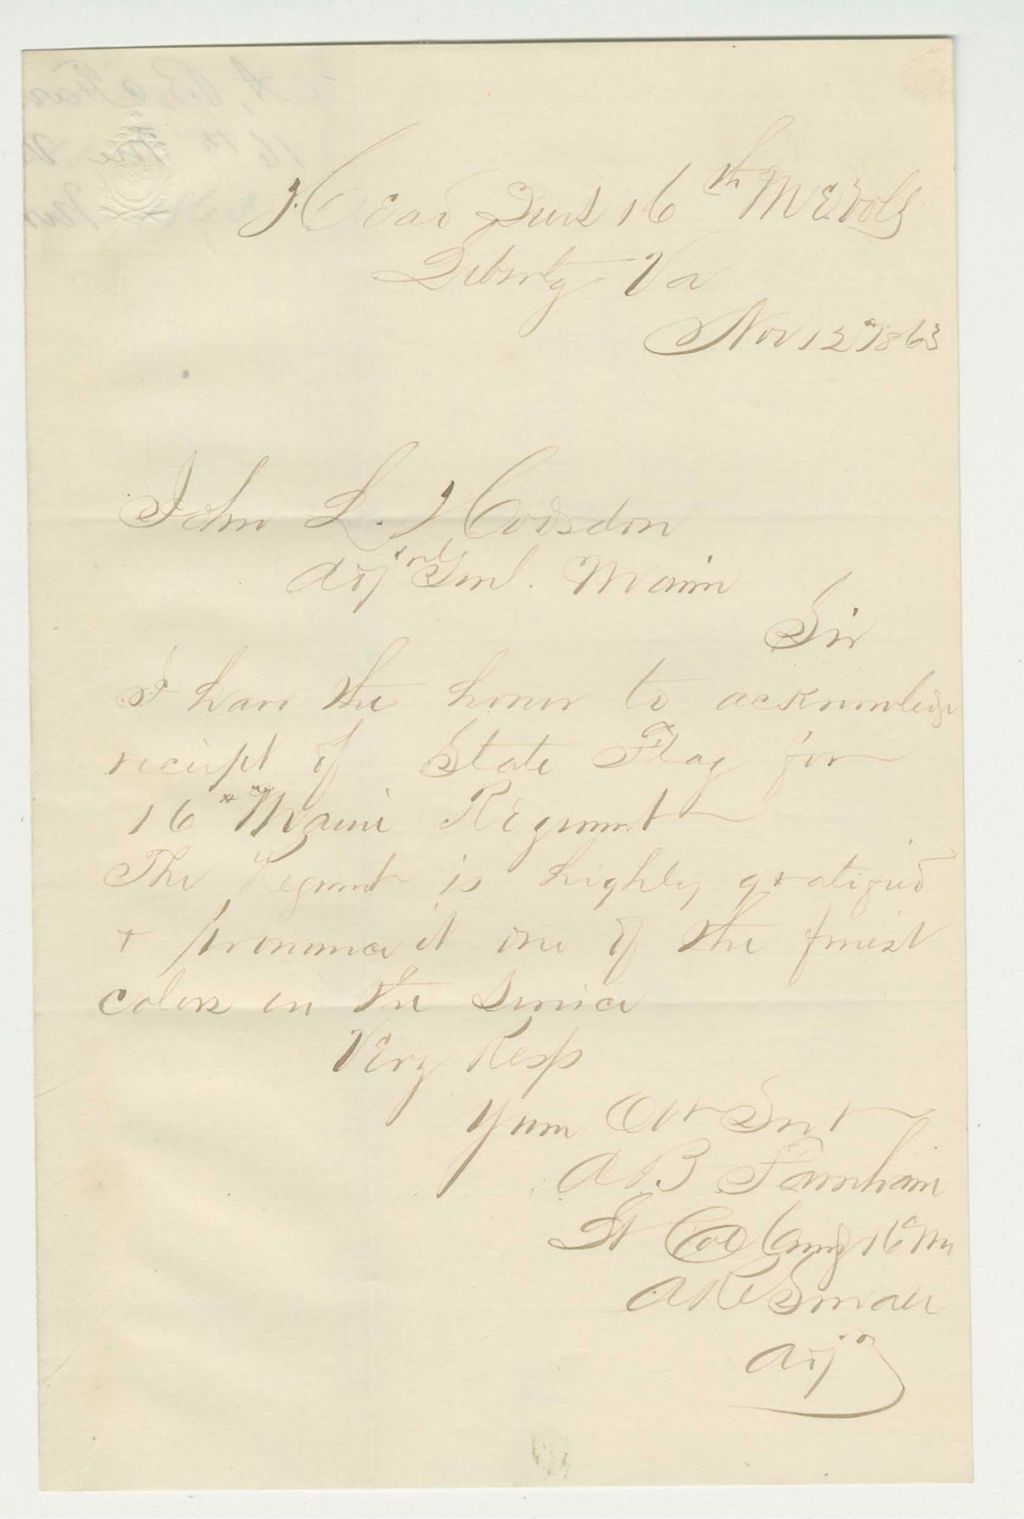 Head Qurs 16th Me Vols
Liberty Va
Nov 12" 1863
John L. Hodsdon
Adjt Genl. Maine
Sir
I have the honor to acknowledge
receipt of State Flag for
16th Maine Regiment
The Regiment is highly gratified
& pronounce it one of the finest
colors in the Service
Very Resp
Your Obt Svt
A B Farnham
Lt Col Comdg 16" Me
A R Small
Adjt